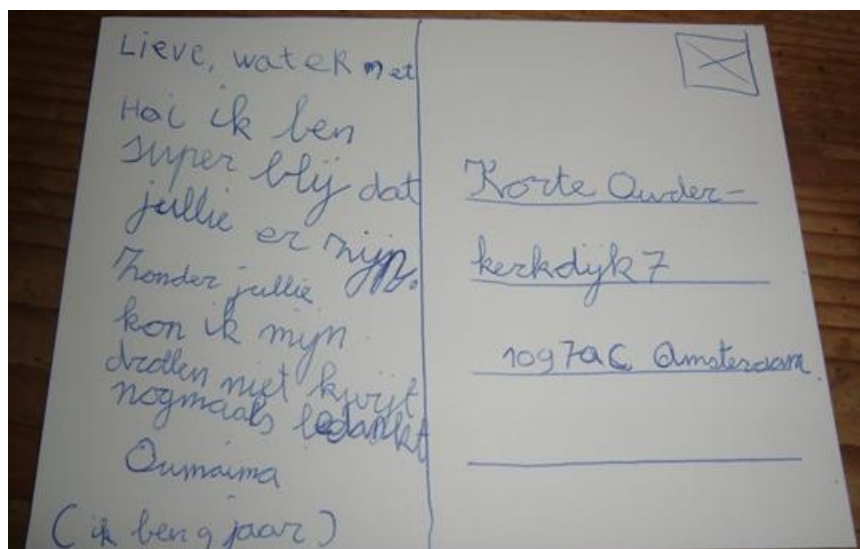 Lieve, water net
Hoi ik ben
super blij dat
jullie er zijn.
Zonder jullie
kon ik mijn
drollen niet kwijt
nogmaals bedankt
Oumaima
(ik ben 9 jaar)
Korte Ouder-
kerkdijk 7
1097ac Amsterdam